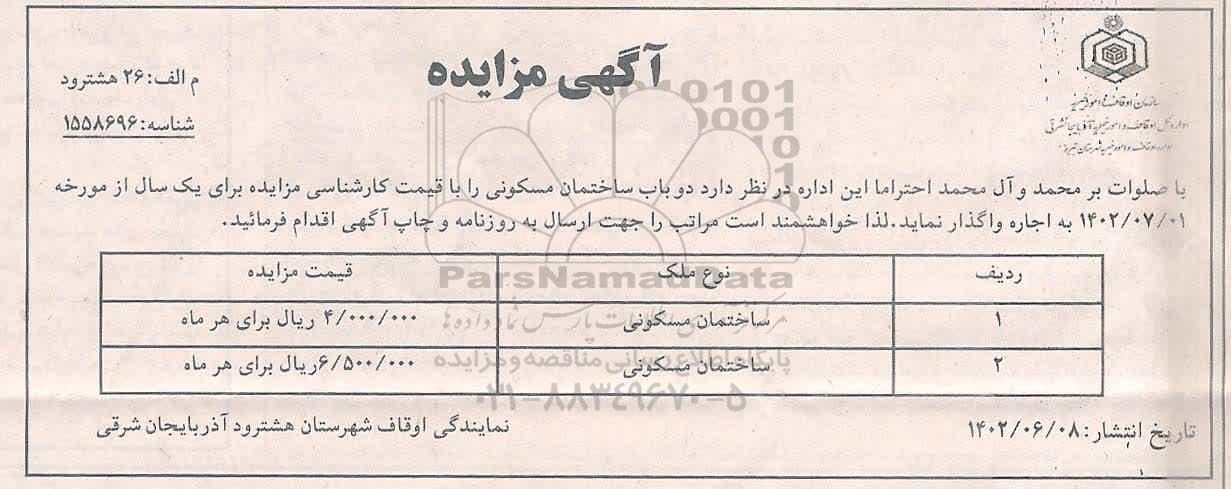 آگهی مزایده
م الف: ۲۶ هشترود
شناسه: ۱۵۵۸۶۹۶
سازمان اوقاف و امور خیریه
اداره کل اوقاف و امور خیریه آذربایجانشرقی
با صلوات بر محمد و آل محمد احتراما این اداره در نظر دارد دو باب ساختمان مسکونی را با قیمت کارشناسی مزایده برای یک سال از مورخه
۱۴۰۲/۰۷/۰۱ به اجاره واگذار نماید.لذا خواهشمند است مراتب را جهت ارسال به روزنامه و چاپ آگهی اقدام فرمائید.
ردیف نوع ملک قیمت مزایده
۱ ساختمان مسکونی ۴/۰۰۰/۰۰۰ ریال برای هر ماه
۲ ساختمان مسکونی ۶/۵۰۰/۰۰۰ریال برای هر ماه
تاریخ انتشار: ۱۴۰۲/۰۶/۰۸
نمایندگی اوقاف شهرستان هشترود آذربایجان شرقی
ParsNamadData
پایگاه اطلاع رسانی مناقصه و مزایده
۰۲۱-۸۸۳۴۹۶۷۰-۵